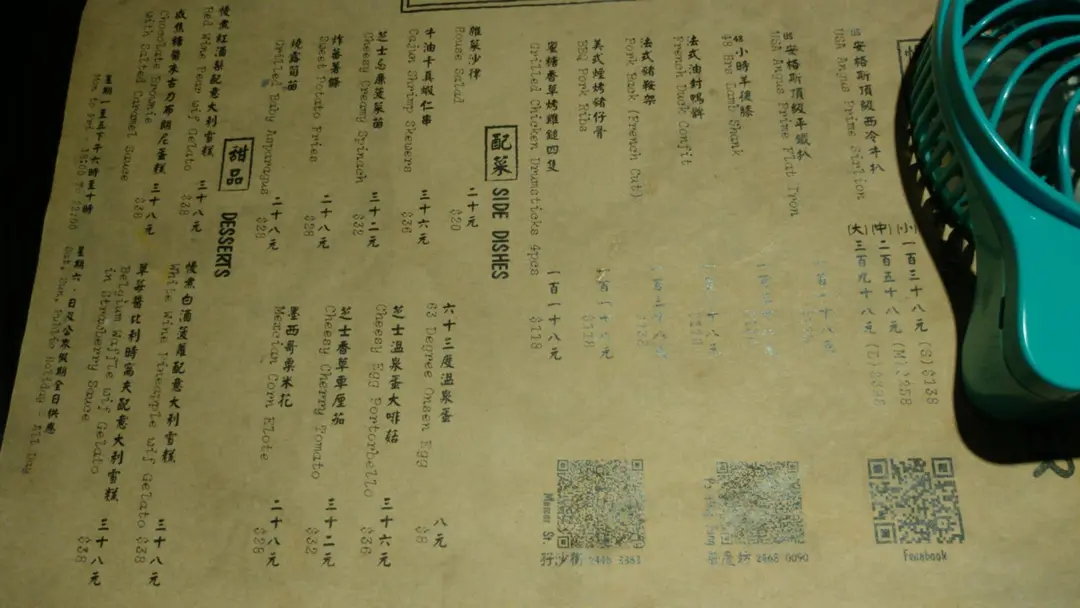 安格斯頂級西冷牛扒
USA Angus Prime Sirlion
(小) 一百三十八元 (S) $138
(中) 二百五十八元 (M) $258
(大) 三百九十八元 (L) $398
安格斯頂級平鐵扒
USA Angus Prime Flat Iron
48小時羊後膝
48 Hrs Lamb Shank
法式油封鴨髀
French Duck Confit
法式豬鞍架
Pork Rack (French Cut)
美式煙烤豬仔骨
BBQ Pork Ribs
蜜糖香草烤雞鎚四隻
Grilled Chicken Drumsticks 4pcs
一百一十八元
$118
配菜 SIDE DISHES
雜菜沙律 二十元
House Salad $20
牛油卡真蝦仁串 三十六元
Cajun Shrimp Skewers $36
芝士忌廉菠菜苗 三十二元
Cheesy Creamy Spinach $32
炸蕃薯條 二十八元
Sweet Potato Fries $28
燒露筍苗 二十八元
Grilled Baby Asparagus $28
六十三度温泉蛋 八元
63 Degree Onsen Egg $8
芝士温泉蛋大啡菇 三十六元
Cheesy Egg Portorbello $36
芝士香草車厘茄 三十二元
Cheesy Cherry Tomato $32
墨西哥粟米花 二十八元
Mexcian Corn Elote $28
甜品 DESSERTS
慢煮紅酒梨配意大利雪糕 三十八元
Red Wine Pear wif Gelato $38
鹹焦糖醬朱古力布朗尼蛋糕 三十八元
Chocolate Brownie
with Salted Caramel Sauce $38
慢煮白酒菠蘿配意大利雪糕 三十八元
White Wine Pineapple wif Gelato $38
草莓醬比利時窩夫配意大利雪糕 三十八元
Belgium Waffle wif Gelato
in Strawberry Sauce $38
星期一至五下午六時至十時
Mon to Fri, 1800 To 22:00
星期六、日及公眾假期全日供應
Sat, Sun, Public Holiday - All Day
Facebook
2468 0090
Mercer St.